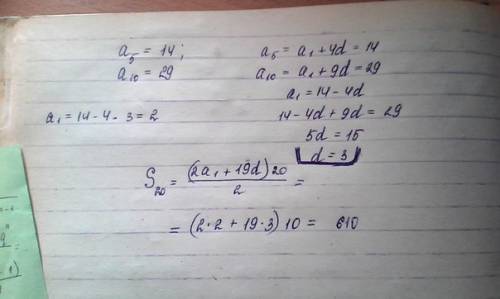 a₅ = 14;
a₁₀ = 29
a₁ = 14 - 4 · 3 = 2
a₅ = a₁ + 4d = 14
a₁₀ = a₁ + 9d = 29
a₁ = 14 - 4d
14 - 4d + 9d = 29
5d = 15
d = 3
S₂₀ = (2a₁ + 19d) 20 / 2 =
= (2·2 + 19·3) 10 = 610